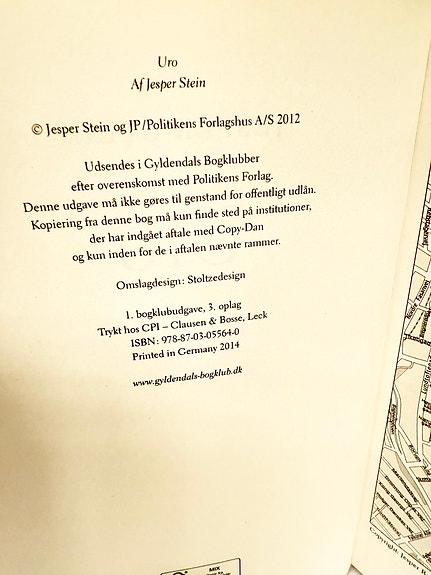 Uro
Af Jesper Stein
© Jesper Stein og JP/Politikens Forlagshus A/S 2012
Udsendes i Gyldendals Bogklubber
efter overenskomst med Politikens Forlag.
Denne udgave må ikke gøres til genstand for offentligt udlån.
Kopiering fra denne bog må kun finde sted på institutioner,
der har indgået aftale med Copy-Dan
og kun inden for de i aftalen nævnte rammer.
Omslagdesign: Stoltzedesign
1. bogklubudgave, 3. oplag
Trykt hos CPI – Clausen & Bosse, Leck
ISBN: 978-87-03-05564-0
Printed in Germany 2014
www.gyldendals-bogklub.dk
MIX
Copyright: Jesper